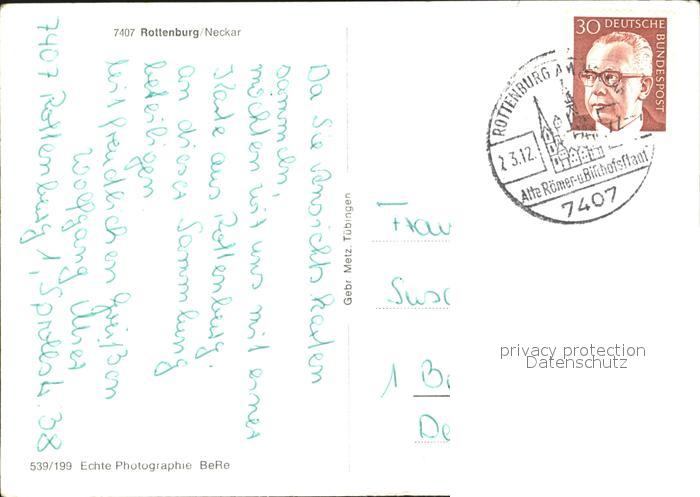 7407 Rottenburg/Neckar
Da Sie Ansichtskarten
sammeln,
möchten wir uns mit einer
Karte aus Rottenburg
an dieser Sammlung
beteiligen
Mit freundlichen Grüßen
Wolfgang
7407 Rottenburg 1, 38
539/199 Echte Photographie BeRe
Gebr. Metz, Tübingen
30 DEUTSCHE BUNDESPOST
ROTTENBURG AM
2.3.12
Alte Römer-u. Bischofsstadt
7407
Frau
Susa
1 Be
De
privacy protection
Datenschutz